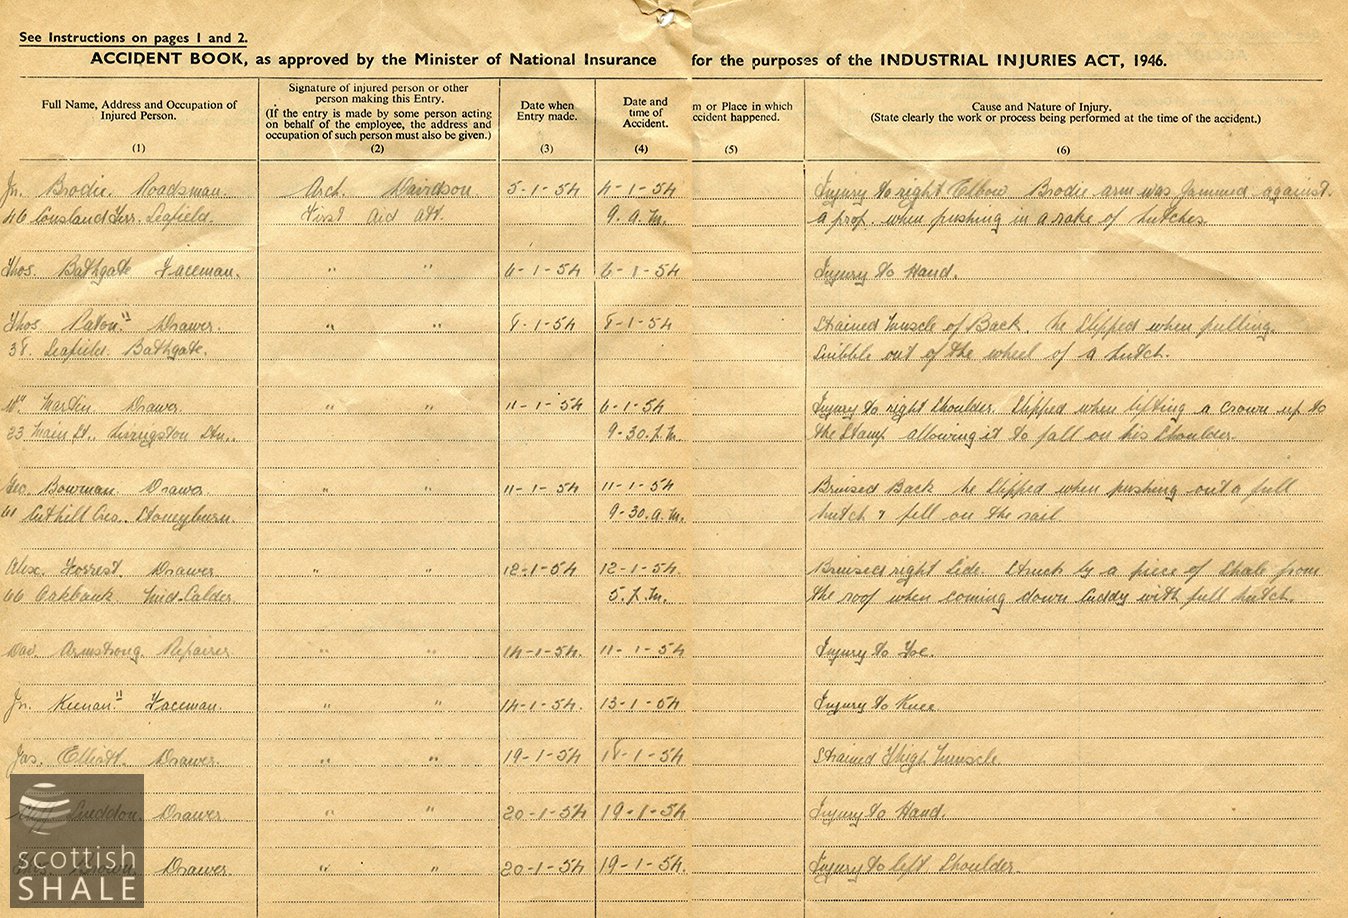 See Instructions on pages 1 and 2.
ACCIDENT BOOK, as approved by the Minister of National Insurance for the purposes of the INDUSTRIAL INJURIES ACT, 1946.
Full Name, Address and Occupation of Injured Person. (1)
Signature of injured person or other person making this Entry. (If the entry is made by some person acting on behalf of the employee, the address and occupation of such person must also be given.) (2)
Date when Entry made. (3)
Date and time of Accident. (4)
m or Place in which ccident happened. (5)
Cause and Nature of Injury. (State clearly the work or process being performed at the time of the accident.) (6)
Jn. Brodie. Roadsman. Arch. Davidson 5-1-54 4-1-54 Injury to right Elbow Brodie arm was jammed against
46 Cousland Terr. Seafield. First Aid Att. 9.a.m. a prop. when pushing in a rake of hutches.
Thos. Bathgate Faceman. " " 6-1-54 6-1-54 Injury to Hand.
Thos. Paton " Drawer. " " 8-1-54 8-1-54 Strained Muscle of Back. he slipped when pulling
38. Seafield. Bathgate. Snibble out of the wheel of a hutch.
Wm. Martin Drawer. " " 11-1-54 6-1-54 Injury to right Shoulder. Slipped when lifting a crown up to
23 Main St., Livingston Stn.. 9-30.p.m. the Stamp allowing it to fall on his shoulder.
Geo. Bowman. Drawer. " " 11-1-54 11-1-54 Bruised Back he slipped when pushing out a full
61 Cuthill Cres. Stoneyburn. 9-30.a.m. hutch & fell on the rail
Alex. Forrest. Drawer " " 12-1-54 12-1-54. Bruised right Side. Struck by a piece of shale from
66 Oakbank. Mid.Calder. 5.p.m. the roof when coming down Cuddy with full hutch.
Dav. Armstrong. Repairer " " 14-1-54. 11-1-54 Injury to Toe.
Jn. Keenan " Faceman. " " 14-1-54. 13-1-54 Injury to Knee
Jas. Elliott. Drawer. " " 19-1-54 18-1-54 Strained Thigh Muscle
Luddon. Drawer " " 20-1-54 19-1-54 Injury to Hand.
Drawer. " " 20-1-54 19-1-54. Injury to left Shoulder.
scottish
SHALE